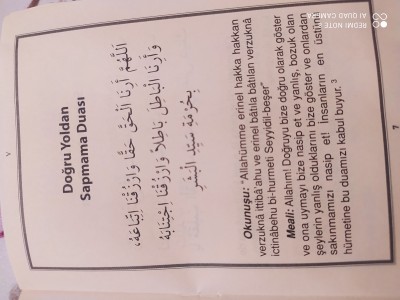 ٧
Doğru Yoldan
Sapmama Duası
اَللّٰهُمَّ اَرِنَا الْحَقَّ حَقًّا وَارْزُقْنَا اِتِّبَاعَهُ،
وَاَرِنَا الْبَاطِلَ بَاطِلًا وَارْزُقْنَا اِجْتِنَابَهُ
بِحُرْمَةِ سَيِّدِ الْبَشَرِ
Okunuşu: "Allahümme erinel hakka hakkan
verzuknâ ittibâ'ahu ve erinel bâtıla bâtılan verzuknâ
ictinâbehu bi-hurmeti Seyyidil-beşer"
Meali: Allahım! Doğruyu bize doğru olarak göster
ve ona uymayı bize nasip et ve yanlış, bozuk olan
şeylerin yanlış olduklarını bize göster ve onlardan
sakınmamızı nasip et! İnsanların en üstünü
hürmetine bu duamızı kabul buyur. 3
7
REDMI NOTE
AI QUAD CAMERA